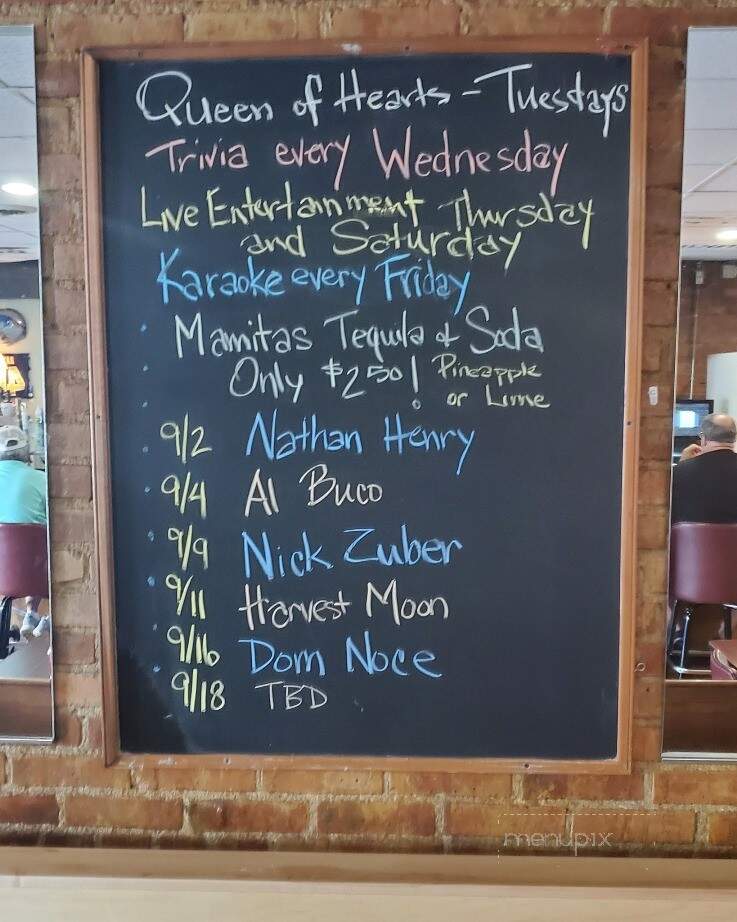 Queen of Hearts - Tuesdays
Trivia every Wednesday
Live Entertainment Thursday
and Saturday
Karaoke every Friday
Mamitas Tequila & Soda
Only $2.50! Pineapple
or Lime
9/2 Nathan Henry
9/4 Al Buco
9/9 Nick Zuber
9/11 Harvest Moon
9/16 Dom Noce
9/18 TBD
menupix